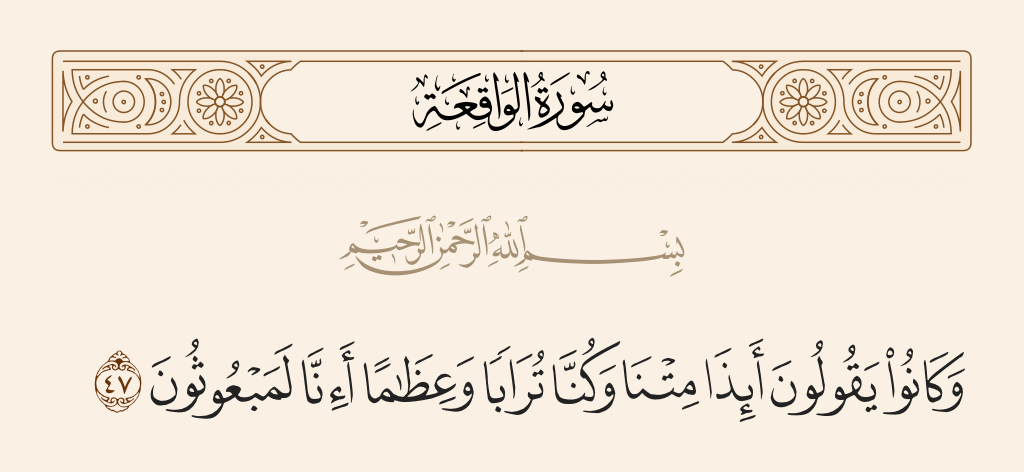 سُورَةُ الوَاقِعَةِ
بِسْمِ ٱللَّهِ ٱلرَّحْمَٰنِ ٱلرَّحِيمِ
وَكَانُوا۟ يَقُولُونَ أَئِذَا مِتْنَا وَكُنَّا تُرَابًا وَعِظَٰمًا أَءِنَّا لَمَبْعُوثُونَ ٤٧